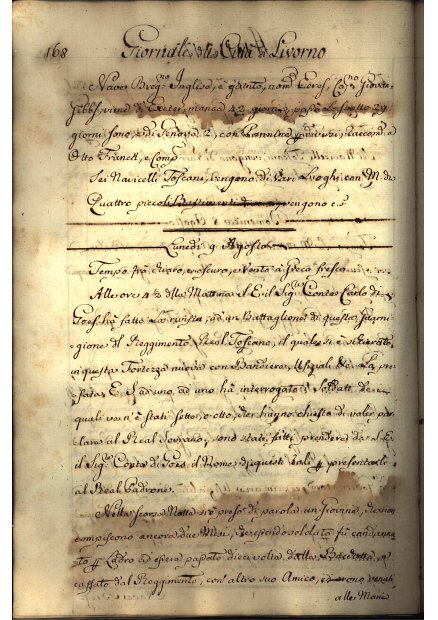 168 Giornale della Città di Livorno
Nave Breg.no Inglese, è giunto, nom. Eros, Cap.no Giovan
Gibbs, viene da Exeter, manca 42 giorni, passò lo stretto 29
giorni sono, e da Genova 2, con Pannine raccom. a
Otto Franck, e Comp.
Sei Navicelli Toscani, vengono da vari Luoghi, con M. di
Quattro piccoli vengono e s
Lunedì 9 Agosto
Tempo frà chiaro, e oscuro, e Vento a Greco fresco
Alle ore 4½ della Mattina S. E. il Sig.r Conte Carlo di
Goes hà fatto La rivista, ad un Battaglione di questa Guarni-
gione del Reggimento Real Toscano, il quale si è schierato
in questa Fortezza nuova con Bandiera, La
E. S. ad uno, ad uno hà interrogato i Soldati, de
quali vi è stati sette, o otto, che hanno chiesto di voler par-
lare al Real Sovrano, sono stati fatti prendere da S. E.
il Sig.r Conte di Goes, il Nome di questi tali p. presentarlo
al Real Padrone.
Nella scorsa Notte fù preso di parola un Giovine, che non
compiscono ancora due Mesi, che essendo soldato fù condannato
p. Ladro ad essere passato dieci volte dalle Bacchette, e
cassato dal Reggimento, con altro suo Amico, ed erono venuti
alle Mani